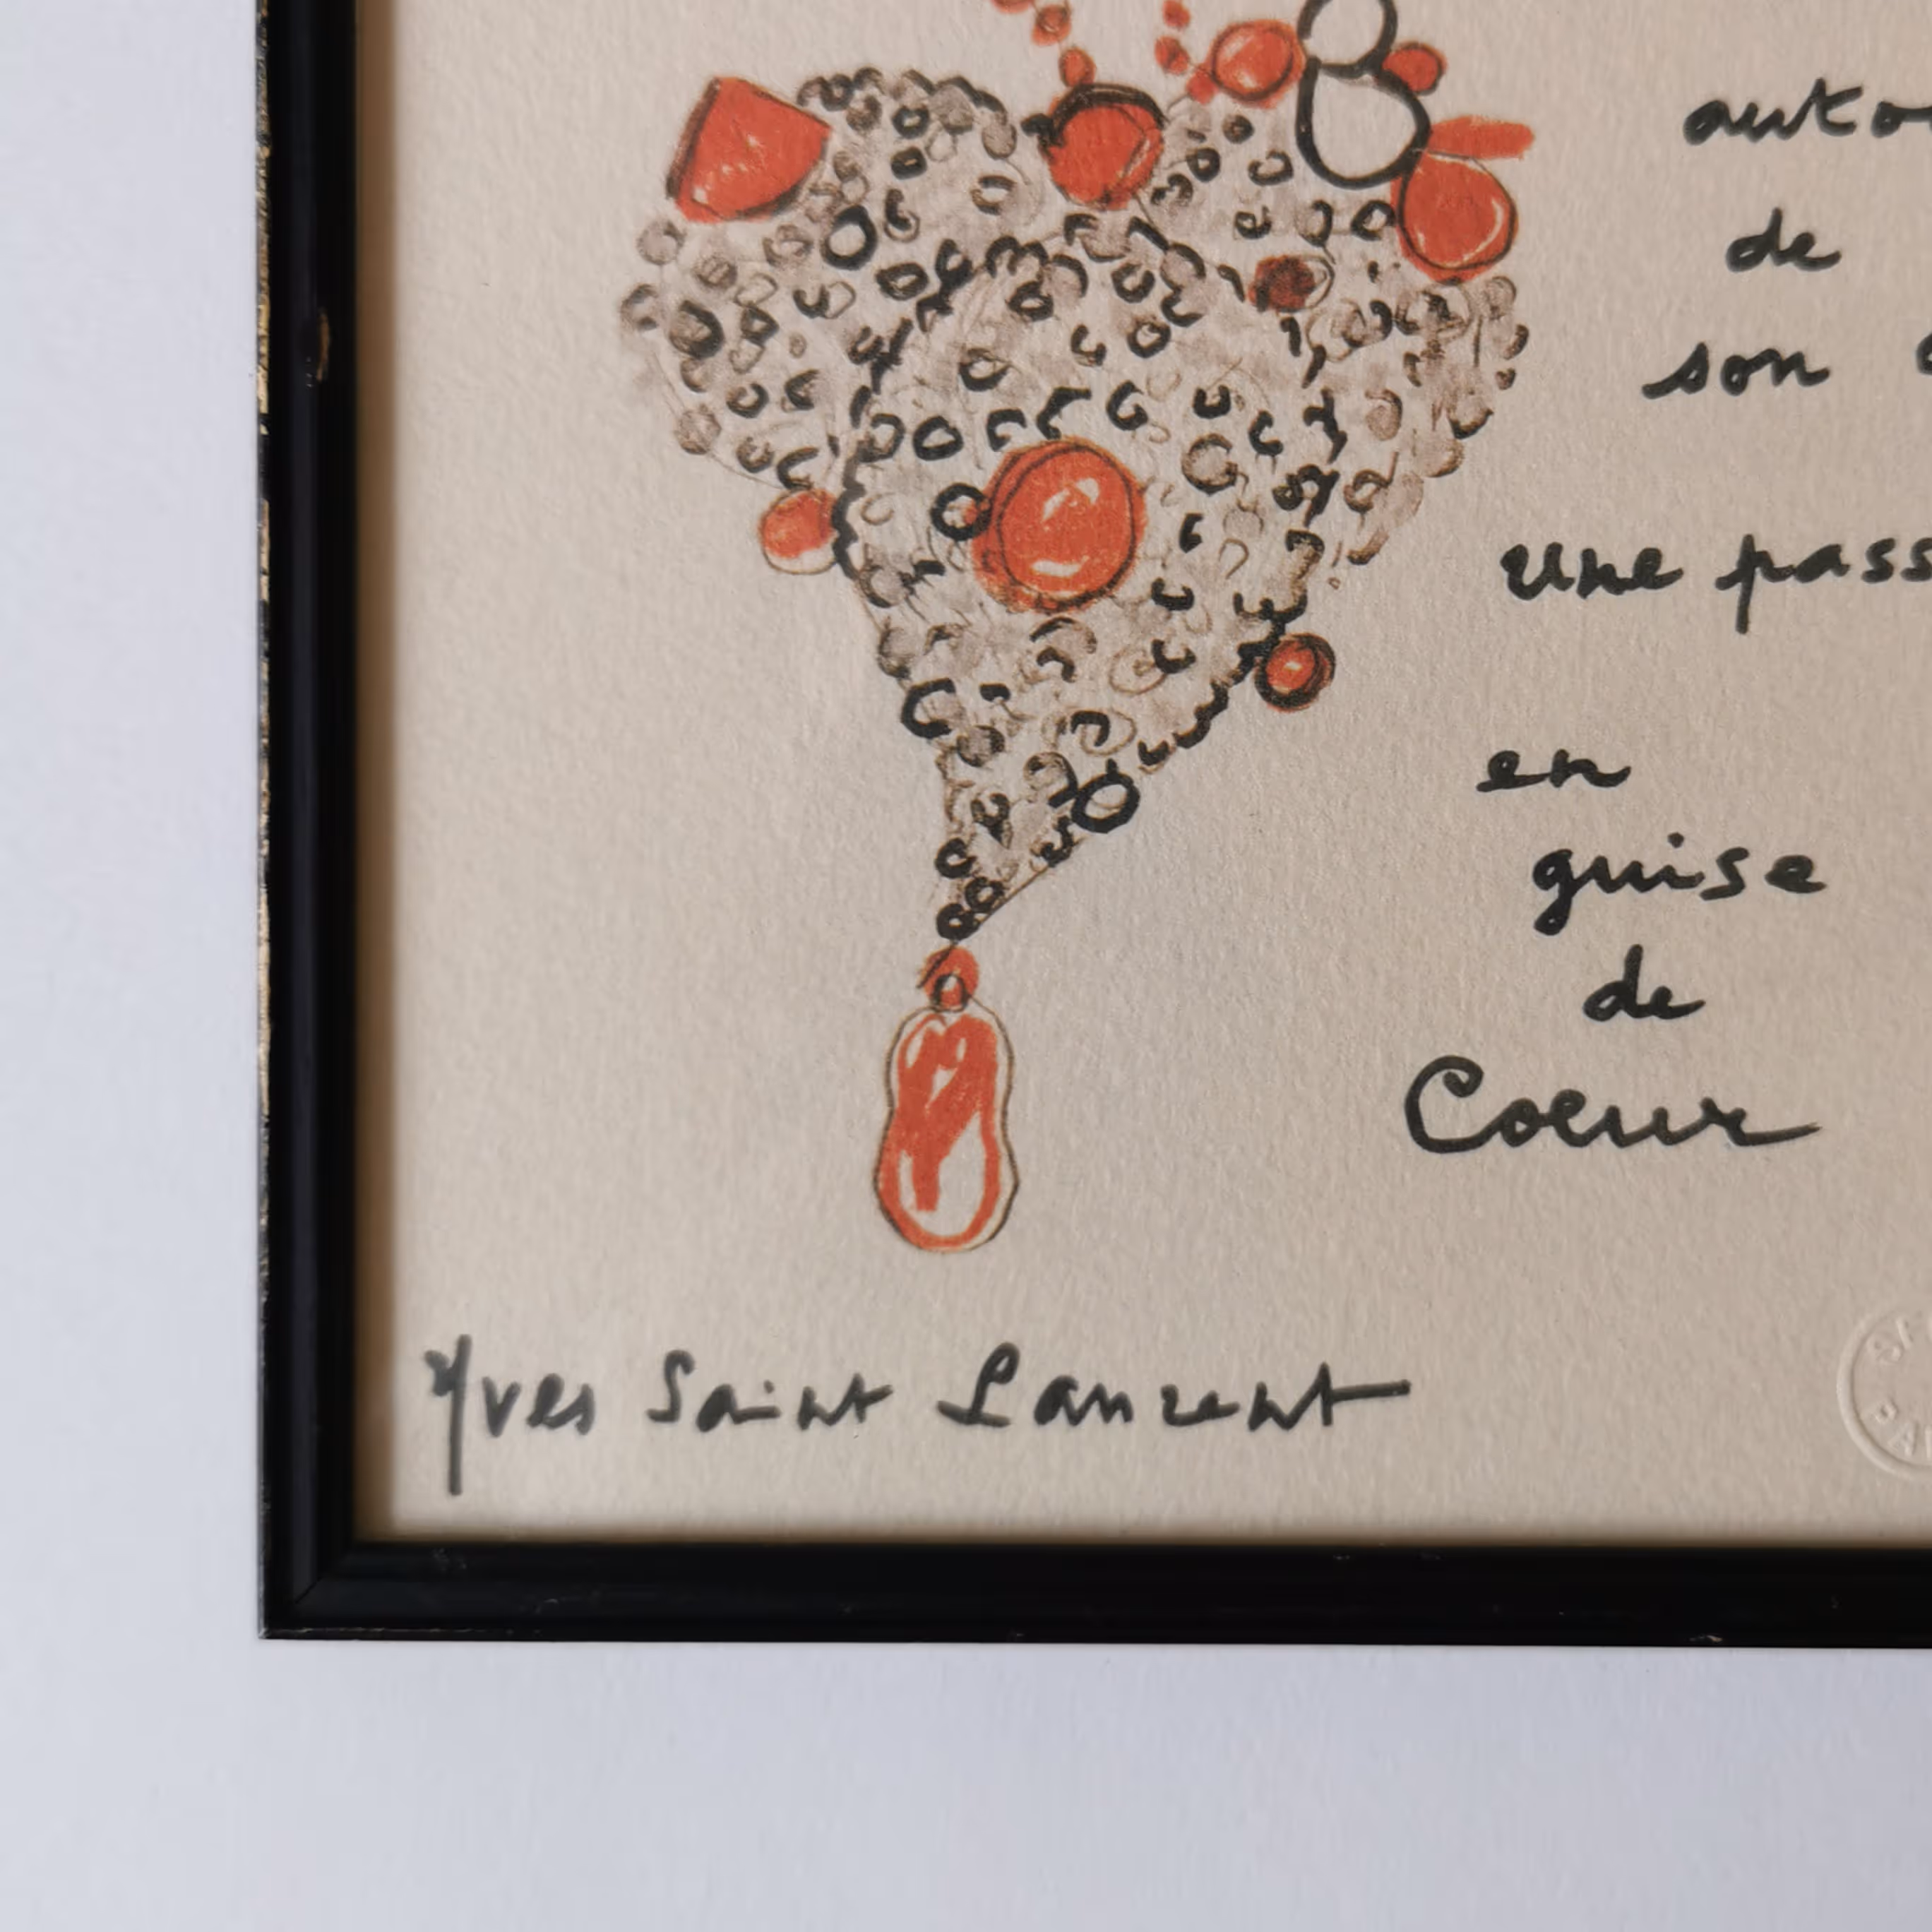 auto
de
son
une pass
en
guise
de
Coeur
Yves Saint Laurent
SA
PA